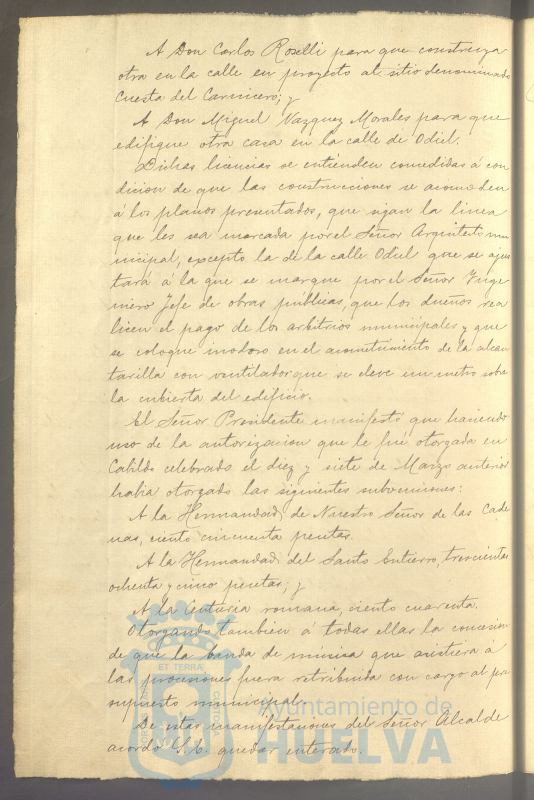 A Don Carlos Roselli para que construya
otra en la calle en proyecto al sitio denominado
Cuesta del Carnicero; y
A Don Miguel Vazquez Morales para que
edifique otra casa en la calle de Odiel.
Dichas licencias se entienden concedidas á con
dicion de que las construcciones se acomoden
á los planos presentados, que sigan la linea
que les sea marcada por el Señor Arquitecto mu
nicipal, excepto la de la calle Odiel que se ajus
tará á la que se marque por el Señor Inge
niero Jefe de obras públicas, que los dueños rea
licen el pago de los arbitrios municipales y que
se coloque inodoro en el acometimiento de la alcan
tarilla con ventilador que se eleve un metro sobre
la cubierta del edificio.
El Señor Presidente manifestó que haciendo
uso de la autorizacion que le fué otorgada en
Cabildo celebrado el diez y siete de Marzo anterior
habia otorgado las siguientes subvenciones:
A la Hermandad de Nuestro Señor de las Cade
nas, ciento cincuenta pesetas.
A la Hermandad del Santo Entierro, trescientas
ochenta y cinco pesetas; y
A la Centuria romana, ciento cuarenta.
Otorgando tambien á todas ellas la concesion
de que la banda de música que asistiera á
las procesiones fuera retribuida con cargo al pre
supuesto municipal.
De estas manifestaciones del Señor Alcalde
acordó S.E. quedar enterado.
ET TERRA
Ayuntamiento de
HUELVA